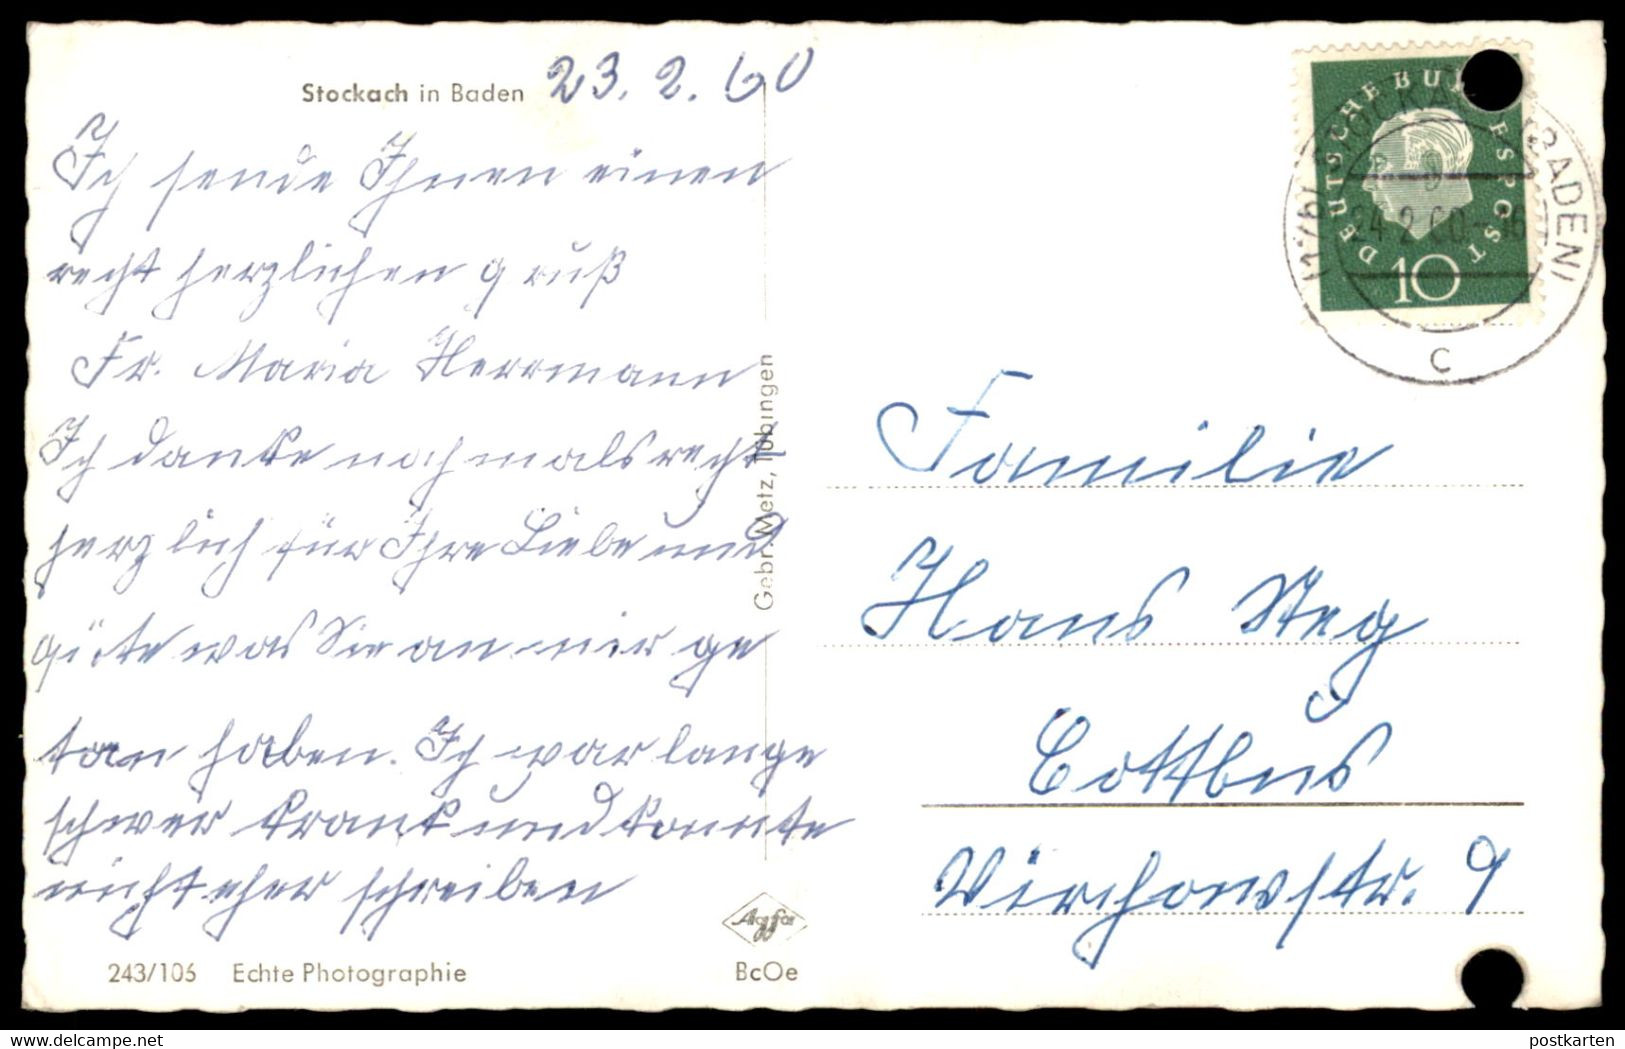 Stockach in Baden 23. 2. 60
Ich sende Ihnen einen
recht herzlichen gruß
Fr. Maria Herrmann
Ich danke nochmals recht
herzlich für Ihre Liebe und
güte was Sie an mir ge
tan haben. Ich war lange
schwer krank und konnte
nicht eher schreiben
243/106 Echte Photographie
Gebr. Metz, Tübingen
Agfa
BcOe
DEUTSCHE BUNDESPOST
10
BADEN)
24.2.60-16
c
Familie
Hans Steg
Cottbus
Virchowstr. 9
postkarten